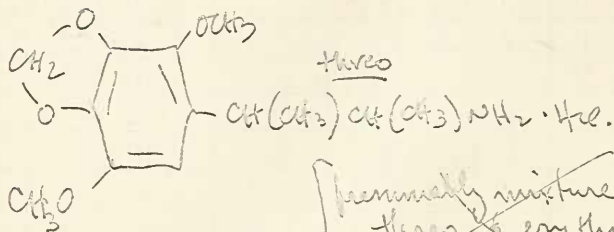 O
OCH3
CH2
threo
O
CH(CH3)CH(CH3)NH2 · HCl.
CH3O
[presumably mixture
threo & erythro